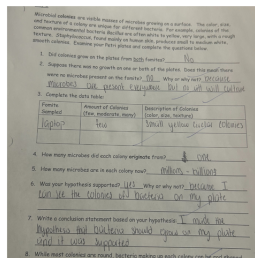 Microbial colonies are visible masses of microbes growing on a surface. The color, size,
and texture of a colony are unique for different bacteria. For example, colonies of the
common environmental bacteria Bacillus are often white to yellow, very large, with a rough
texture. Staphylococcus, found mainly on human skin, produces small to medium white,
smooth colonies. Examine your Petri plates and complete the questions below.
1. Did colonies grow on the plates from both fomites? No
2. Suppose there was no growth on one or both of the plates. Does this mean there
were no microbes present on the fomite? no Why or why not? because
microbes are present everywhere but
3. Complete the data table:
Fomite Sampled
Amount of Colonies (few, moderate, many)
Description of Colonies (color, size, texture)
few
small yellow circular colonies
4. How many microbes did each colony originate from? one
5. How many microbes are in each colony now? million - billions
6. Was your hypothesis supported? yes Why or why not? because I
can see the colonies of bacteria on my plate
7. Write a conclusion statement based on your hypothesis: I made the
hypothesis that bacteria should grow on my plate
and it was supported
8. While most colonies are round, bacteria making up each colony can be